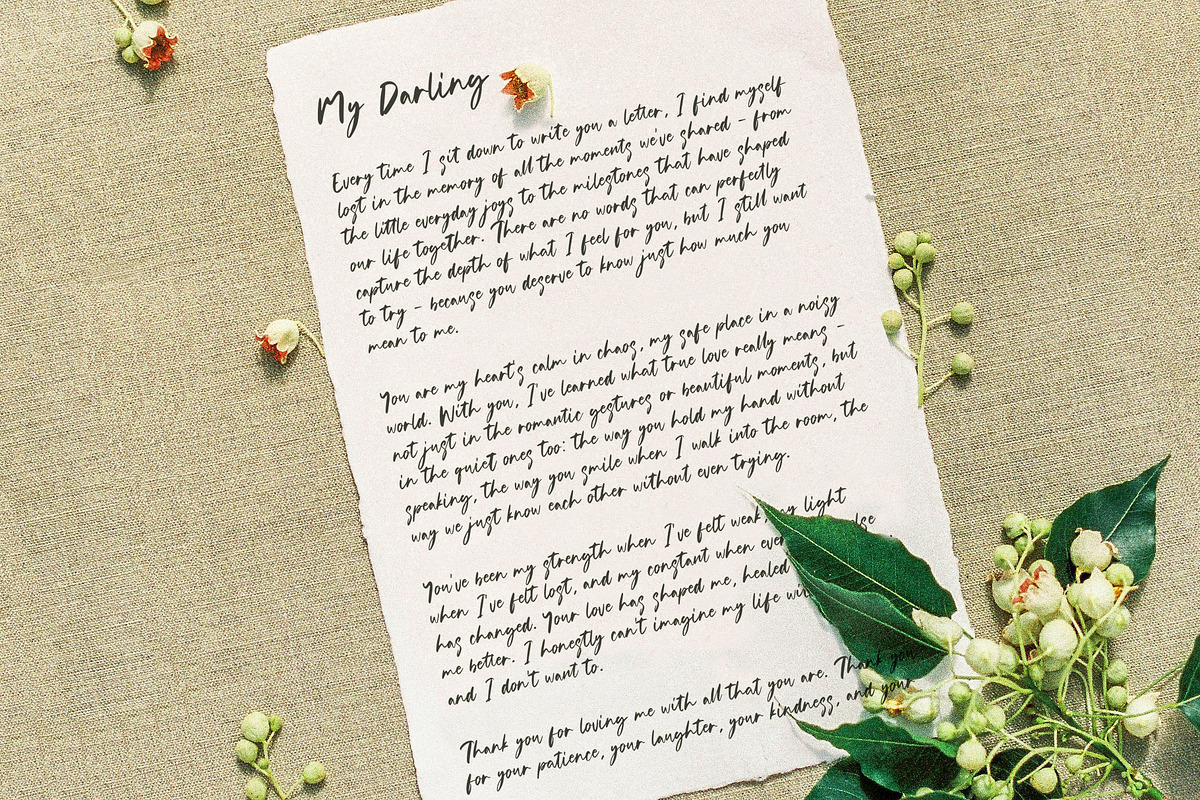 My Darling
Every time I sit down to write you a letter, I find myself
lost in the memory of all the moments we've shared - from
the little everyday joys to the milestones that have shaped
our life together. There are no words that can perfectly
capture the depth of what I feel for you, but I still want
to try - because you deserve to know just how much you
mean to me.
You are my heart's calm in chaos, my safe place in a noisy
world. With you, I've learned what true love really means -
not just in the romantic gestures or beautiful moments, but
in the quiet ones too: the way you hold my hand without
speaking, the way you smile when I walk into the room, the
way we just know each other without even trying.
You've been my strength when I've felt weak, my light
when I've felt lost, and my constant when else
has changed. Your love has shaped me, healed
me better. I honestly can't imagine my life
and I don't want to.
Thank you for loving me with all that you are. Thank you
for your patience, your laughter, your kindness, and your